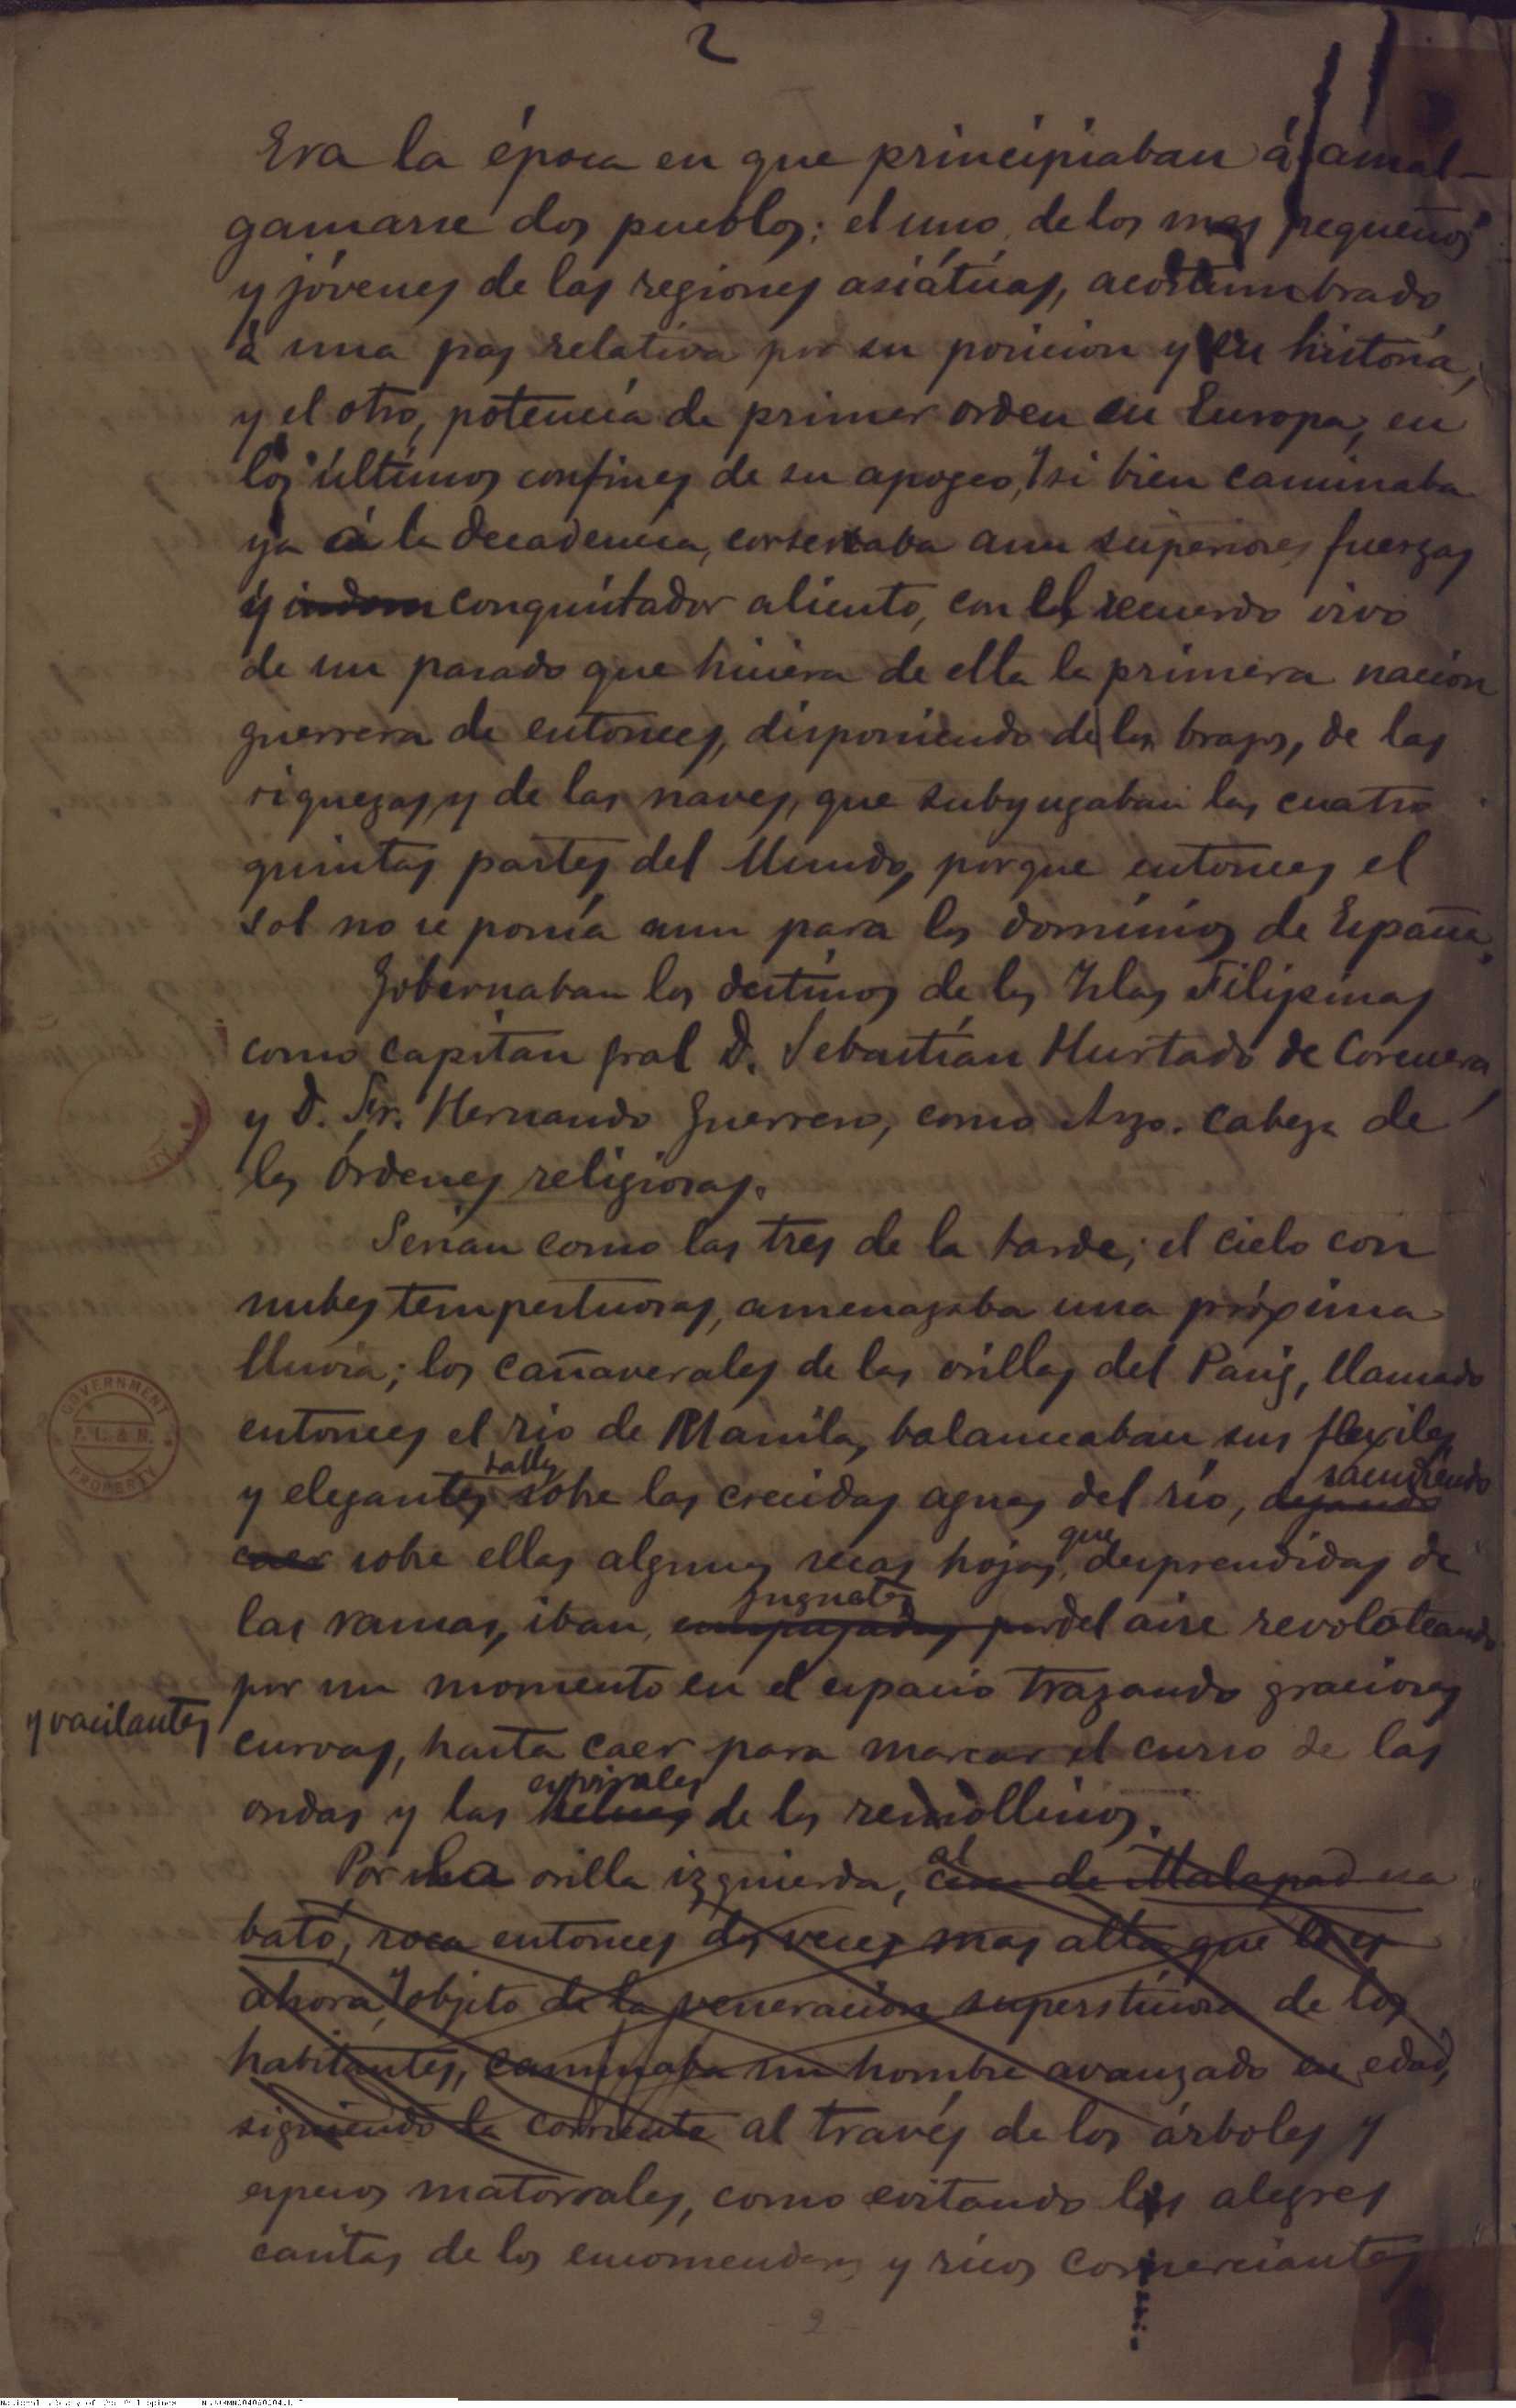 2
Era la época en que principiaban á amal-
gamarse dos pueblos: el uno, de los mas pequeños
y jóvenes de las regiones asiáticas, acostumbrado
á una paz relativa por su posicion y su historia,
y el otro, potencia de primer orden en Europa, en
los últimos confines de su apogeo, y si bien caminaba
ya á la decadencia, conservaba aun superiores fuerzas
y indom conquistador aliento, con el recuerdo vivo
de un pasado que hiciera de ella la primera nacion
guerrera de entonces, disponiendo de los brazos, de las
riquezas, y de las naves, que subyugaban las cuatro
quintas partes del Mundo, porque entonces el
sol no se ponía aun para los dominios de España.
Gobernaban los destinos de las Islas Filipinas
como capitan gral D. Sebastián Hurtado de Corcuera,
y D. Fr. Hernando Guerrero, como Arzo. cabeza de
las Órdenes religiosas.
Serían como las tres de la tarde; el cielo con
nubes tempestuosas, amenazaba una próxima
lluvia; los cañaverales de las orillas del Pasig, llamado
entonces el rio de Manila, balanceaban sus flexiles
talles
sacudiendo
y elegantes sobre las crecidas aguas del río, dejando
que
caer sobre ellas algunas secas hojas, desprendidas de
juguetes
las ramas, iban, empujadas por del aire revoloteando
por un momento en el espacio trazando graciosas
y vacilantes
curvas, hasta caer para marcar el curso de las
espirales
ondas y las de los remollinos.
Por la orilla izquierda, cerca de Malapad na
bató, roca entonces dos veces mas alta que lo es
ahora, y objeto de la veneracion supersticiosa de los
habitantes, caminaba un hombre avanzado en edad,
siguiendo la corriente al través de los árboles y
espesos matorrales, como evitando las alegres
casitas de los encomenderos y ricos comerciantes
GOVERNMENT
P. L. & M.
PROPERTY